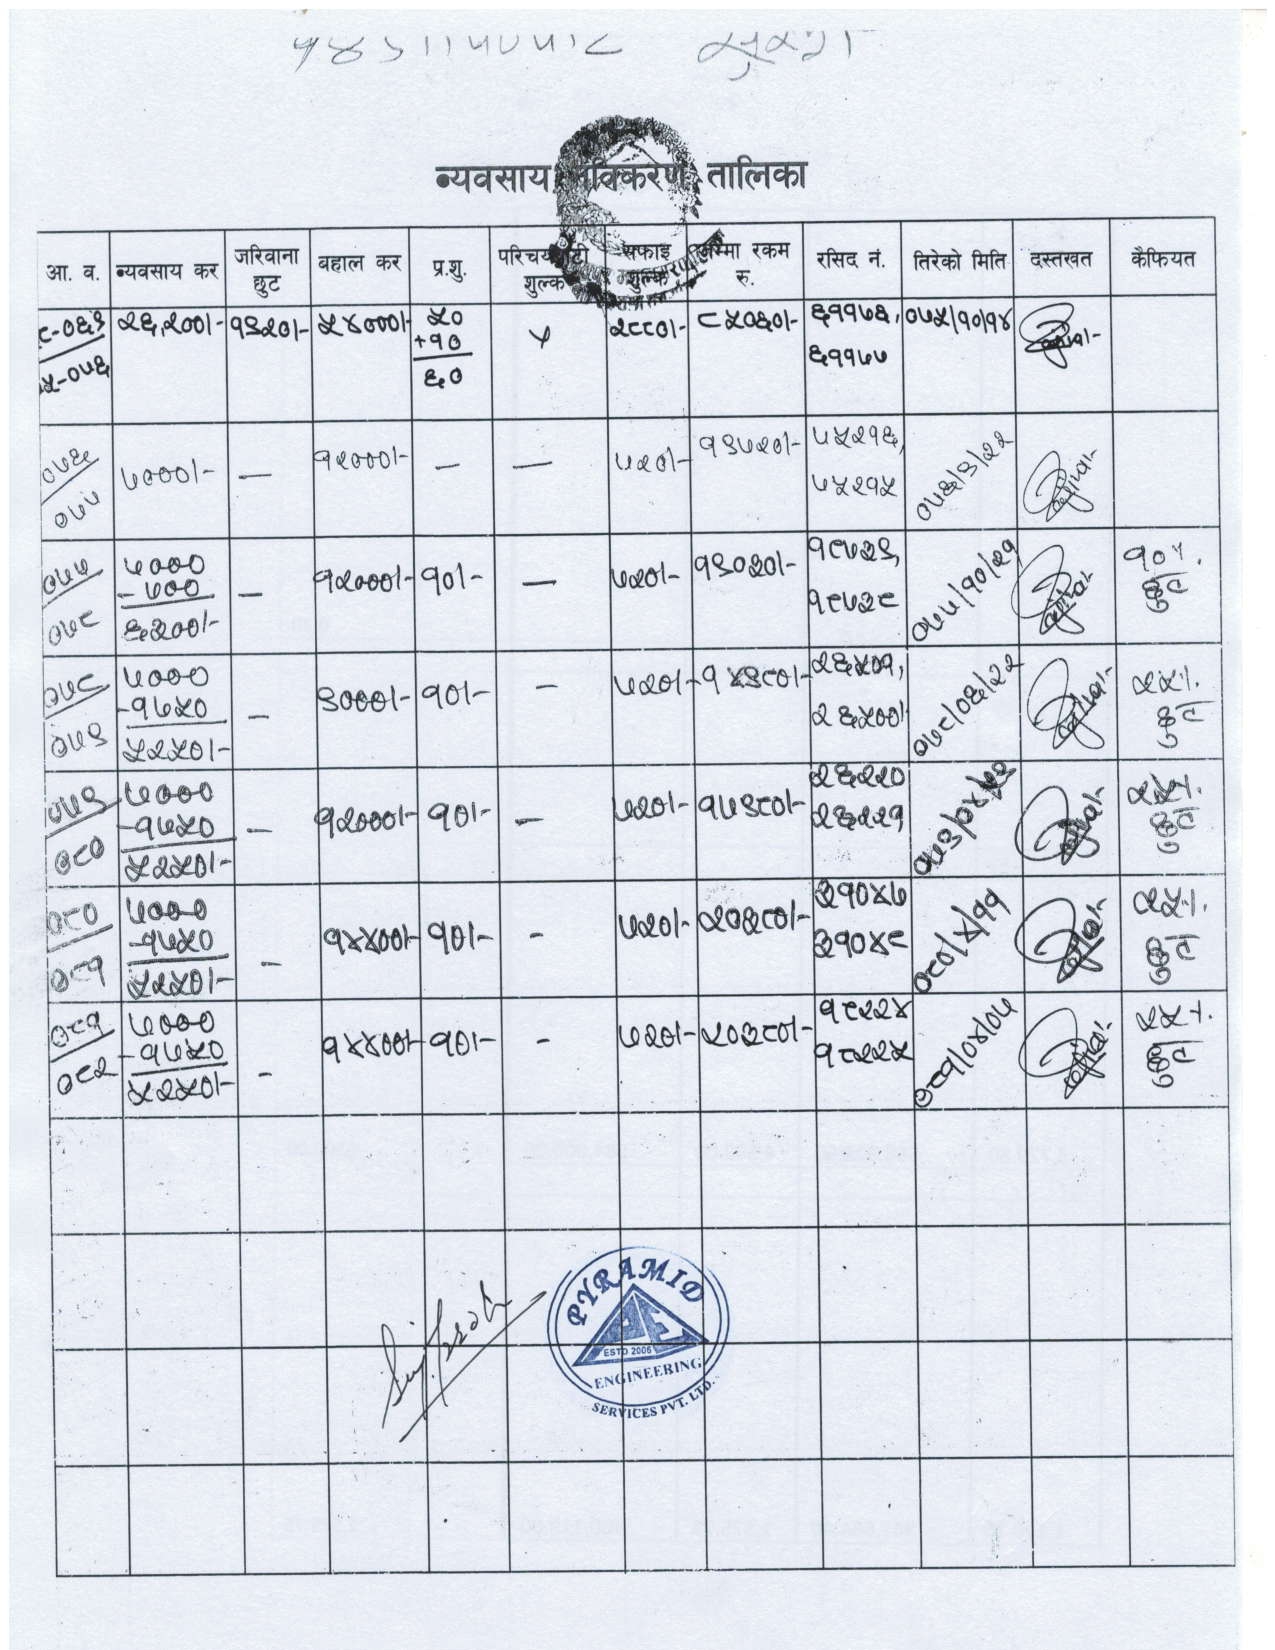 व्यवसाय नविकरण तालिका
आ. व. व्यवसाय कर जरिवाना छुट बहाल कर प्र.शु. परिचयपाटी शुल्क सफाइ शुल्क जम्मा रकम रु. रसिद नं. तिरेको मिति दस्तखत कैफियत
२६,२००।- १९२०।- ५४०००।- ५० +१० ६० २८८०।- ८५०६०।- ६११७६, ६११७७ ०७५/१०/१४
०७६ ०७७ ७०००।- — १२०००।- — — ७२०।- १९७२०।- ७५२१६, ७५२१५ ०७६/९/२२
०७७ ०७८ ७००० -७०० ६३००।- — १२०००।- १०।- — ७२०।- १९०२०।- १८७२९, १८७२८ ०७७/१०/२१ १०% छुट
०७८ ०७९ ७००० -१७५० ५२५०।- — ९०००।- १०।- — ७२०।- १४९८०।- २६५०१, २६५००।- ०७८/०६/२२ २५% छुट
०७९ ०८० ७००० -१७५० ५२५०।- — १२०००।- १०।- — ७२०।- १७९८०।- २६२२० २६२२१ २५% छुट
०८० ०८१ ७००० -१७५० ५२५०।- — १४४००।- १०।- - ७२०।- २०३८०।- ३१०४७ ३१०४८ ०८०/४/११ २५% छुट
०८१ ०८२ ७००० -१७५० ५२५०।- — १४४००।- १०।- - ७२०।- २०३८०।- १८२२४ १८२२५ ०८१/०४/०७ २५% छुट
PYRAMID
ESTD 2006
ENGINEERING
SERVICES PVT. LTD.